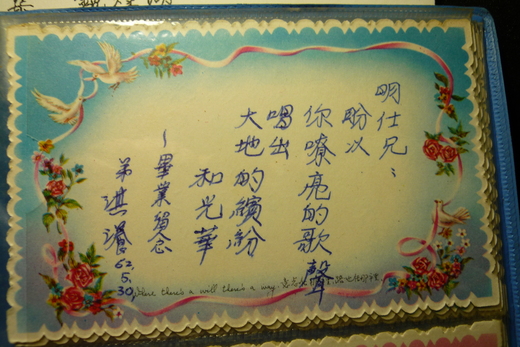 明仕兄：
盼以
你嘹亮的歌聲
唱出
大地的繽紛
和光華
～畢業留念
弟 琪
62.5.30
Where there's a will there's a way.